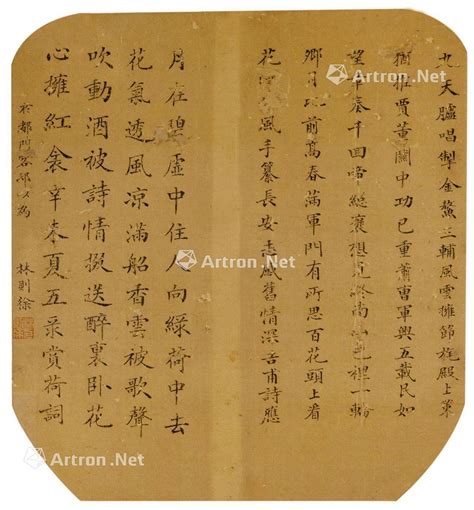 九天臚唱掣金鰲三輔風雲擁節旄殿上策
猶推賈董關中功已重蕭曹軍興五載民如
望年奏千回想見終南裡一輪
鄉月前萬春滿軍門有所思百花頭上看
花風手纂長安志感舊情深甫詩應
月在碧虛中住人向綠荷中去
花氣透風凉滿船香雲被歌聲
吹動酒被詩情掇送醉裏卧花
心擁紅衾辛未夏五录賞荷詞
於都門客邸以為
林則徐
Artron.Net
Artron.Net
Artron.Net
Artron.Net
Artron.Net